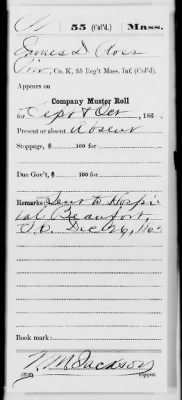 55 (Col'd.) Mass.
James D
Co. K, 55 Reg't Mass. Inf. (Col'd).
Appears on
Company Muster Roll
for Sept & Oct, 186
Present or absent Absent
Stoppage, $ 100 for
Due Gov't, $ 100 for
Remarks: Sent to Hospi
tal Beaufort,
S.C. Dec 26, 1863
Book mark:
Copyist.